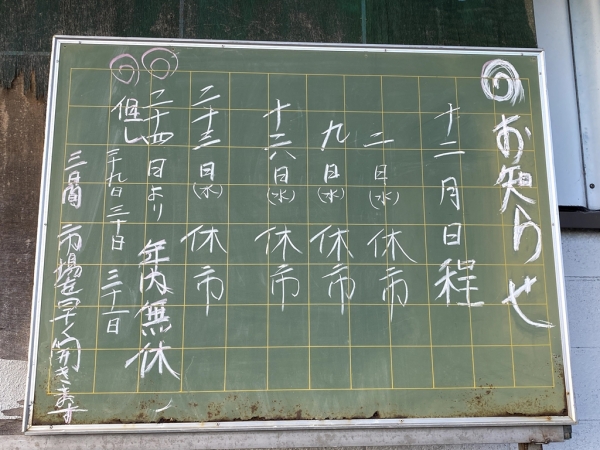 ◎お知らせ
十二月日程
二日(水)休市
九日(水)休市
十六日(水)休市
二十三日(水)休市
◎二十四日より 年内無休
◎但し 二十九日 三十日 三十一日
三日間 市場を早く開きます